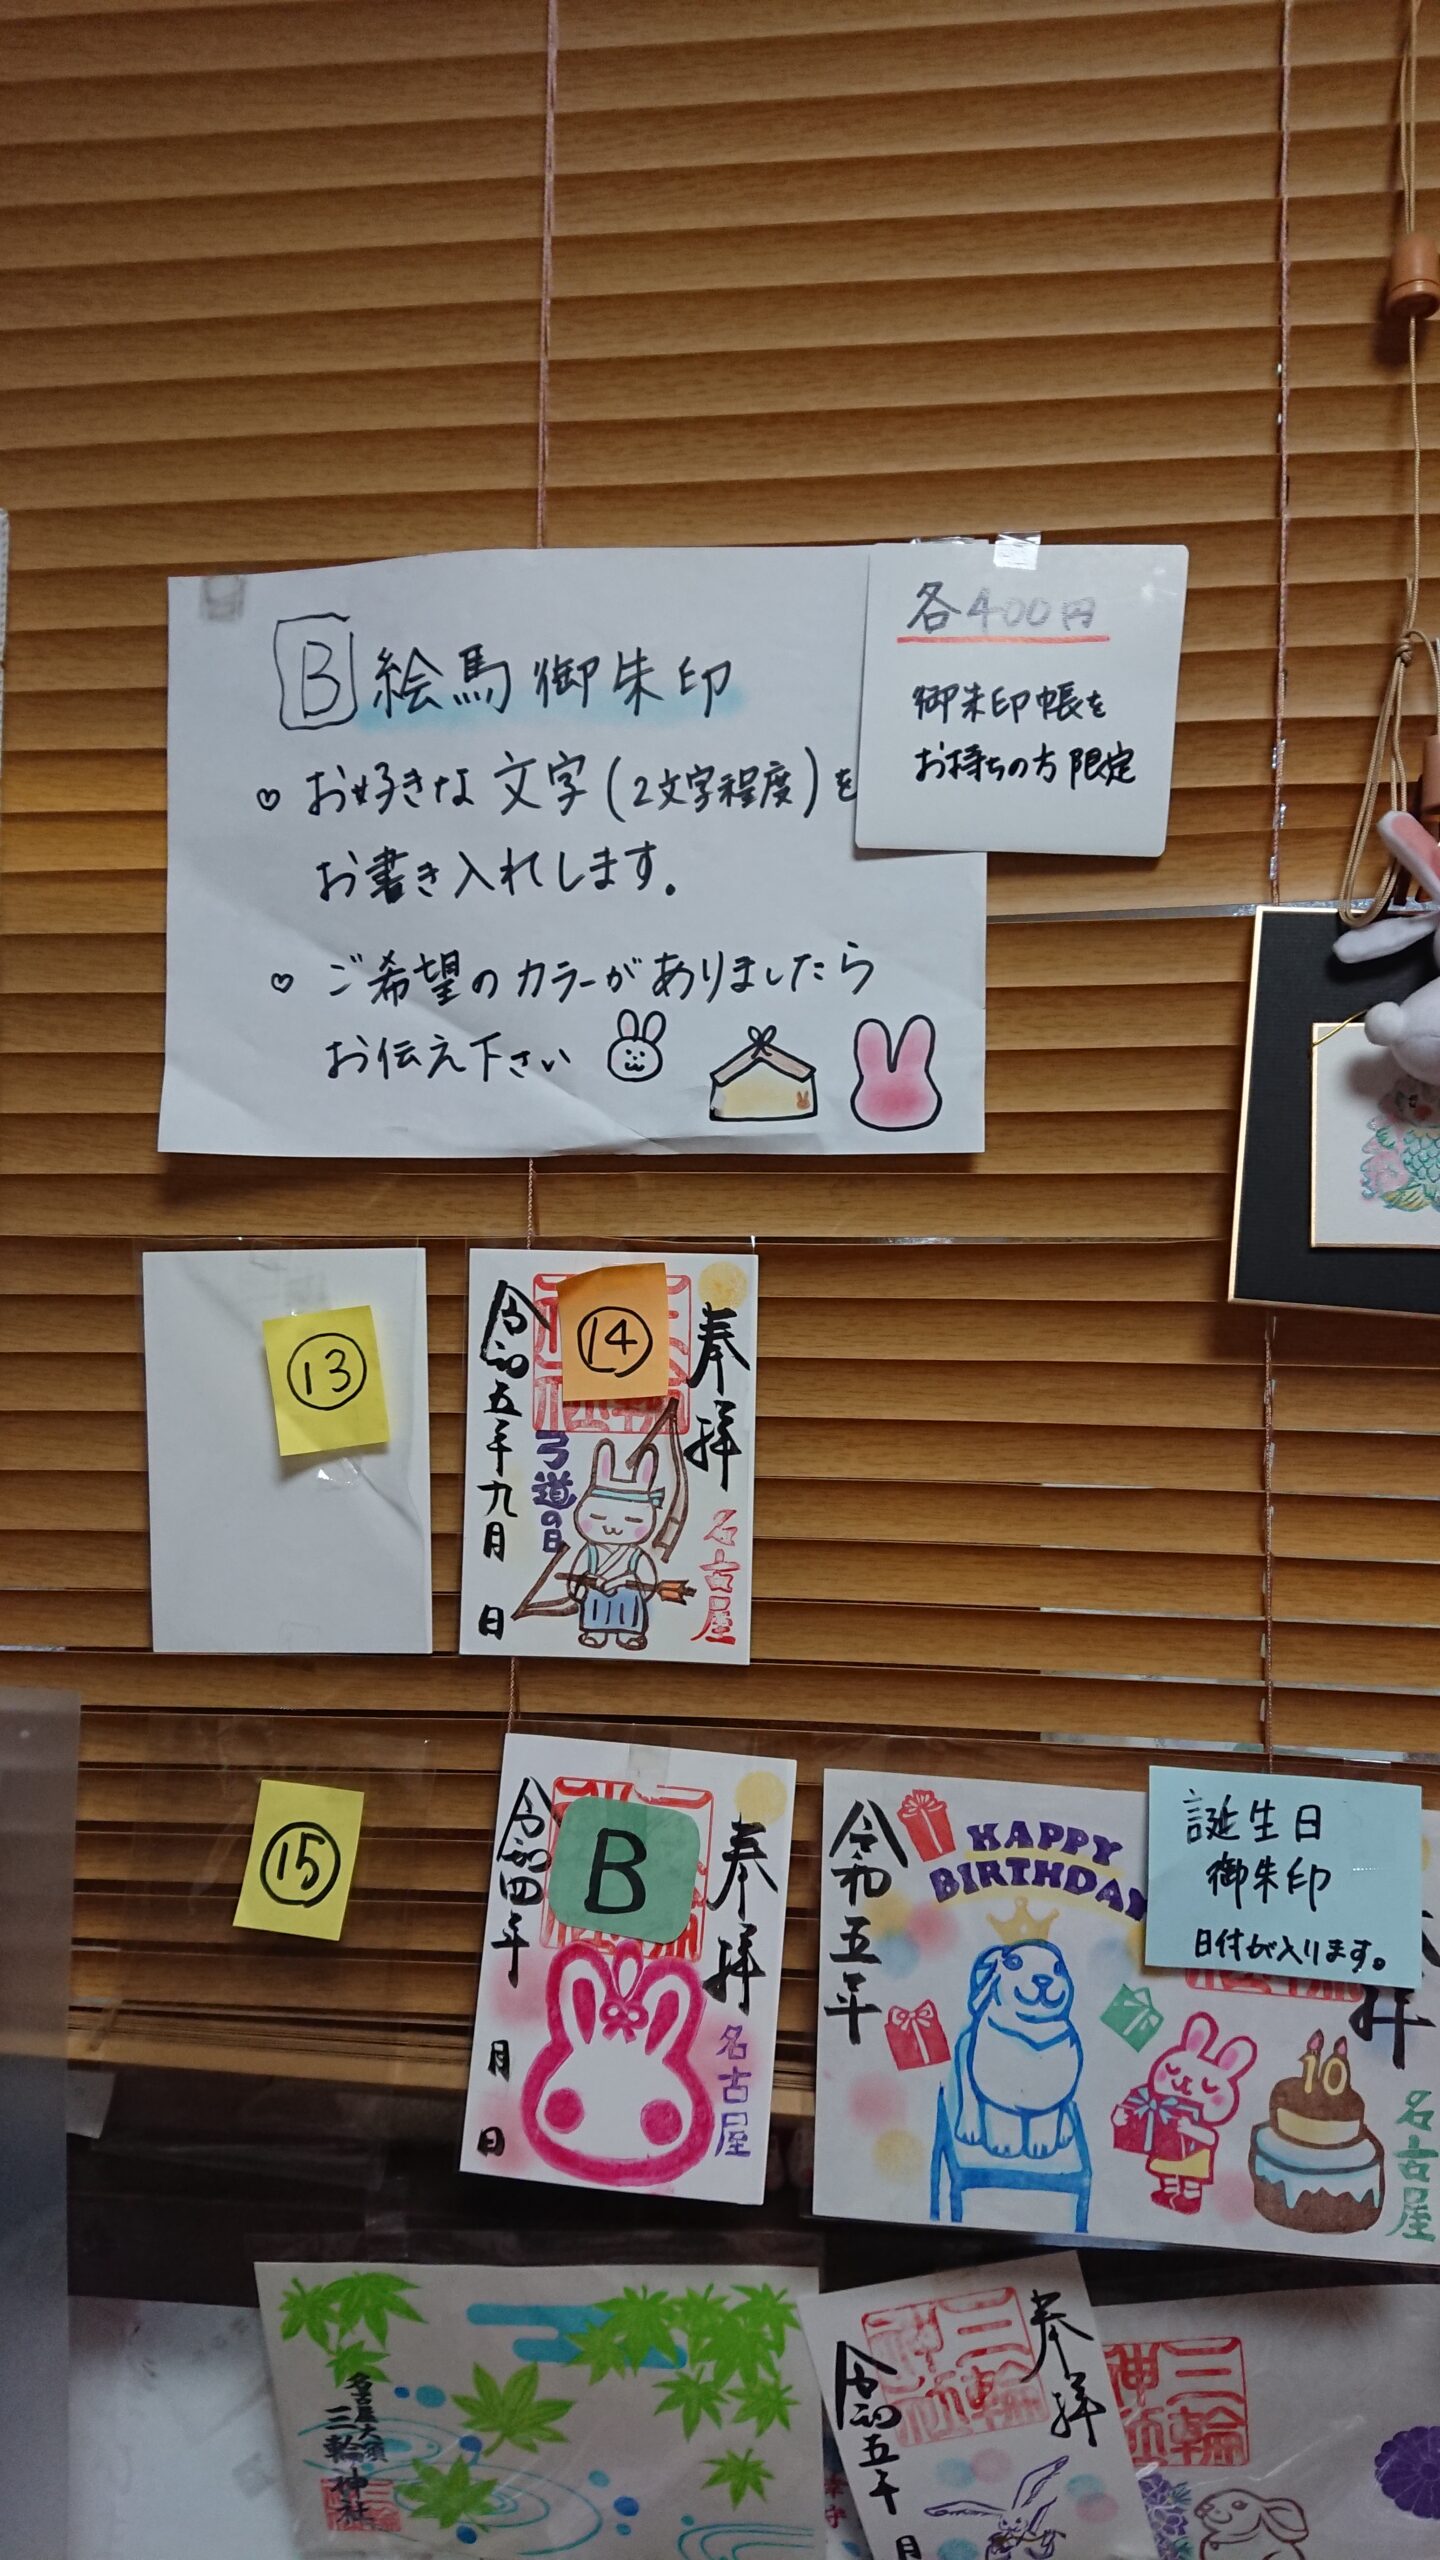 B 絵馬御朱印
♡ お好きな文字(2文字程度)を
お書き入れします。
♡ ご希望のカラーがありましたら
お伝え下さい
各400円
御朱印帳を
お持ちの方限定
13
14
奉拝
名古屋
弓道の日
令和五年九月 日
15
B
奉拝
名古屋
令和四年 月 日
HAPPY
BIRTHDAY
誕生日
御朱印
日付が入ります。
令和五年
拝
名古屋
10
名古屋大須
三輪神社
奉拝
三輪
神社
令和五年 月
三輪
神社